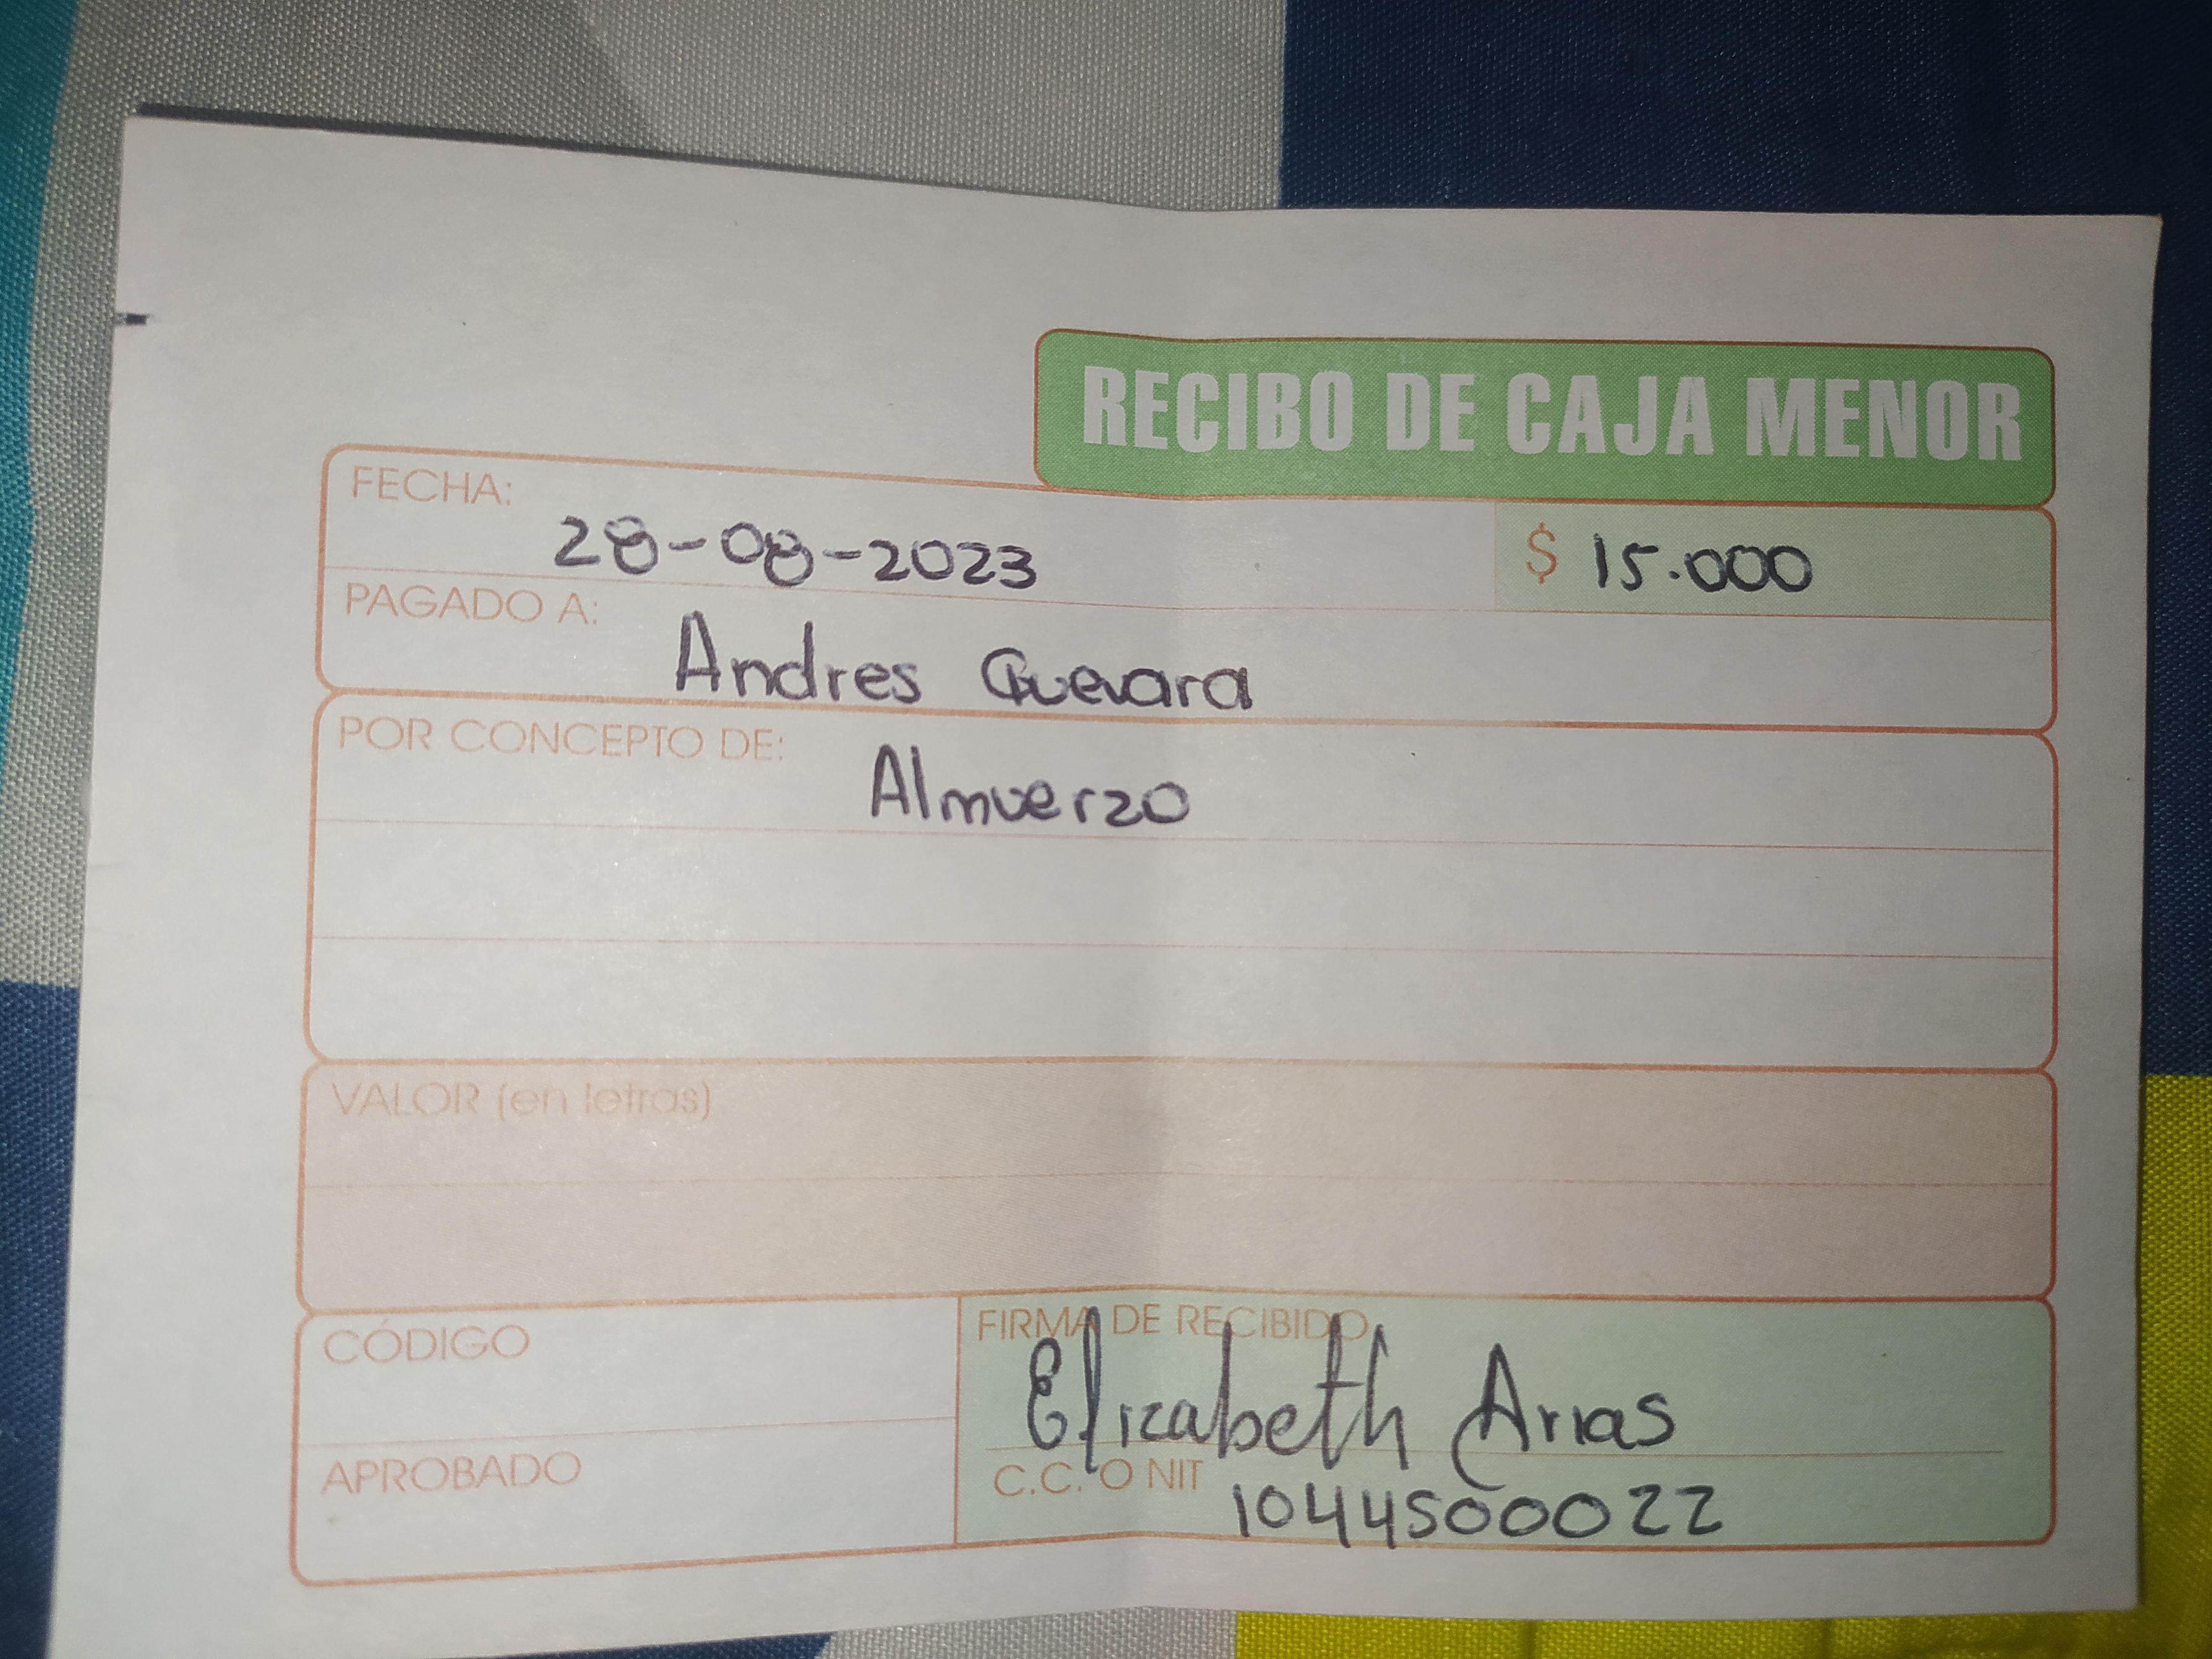 RECIBO DE CAJA MENOR
FECHA: 28-08-2023 $ 15.000
PAGADO A: Andres Guevara
POR CONCEPTO DE: Almuerzo
VALOR (en letras)
CÓDIGO
APROBADO
FIRMA DE RECIBIDO
Elizabeth Arias
C.C. O NIT 1044500022